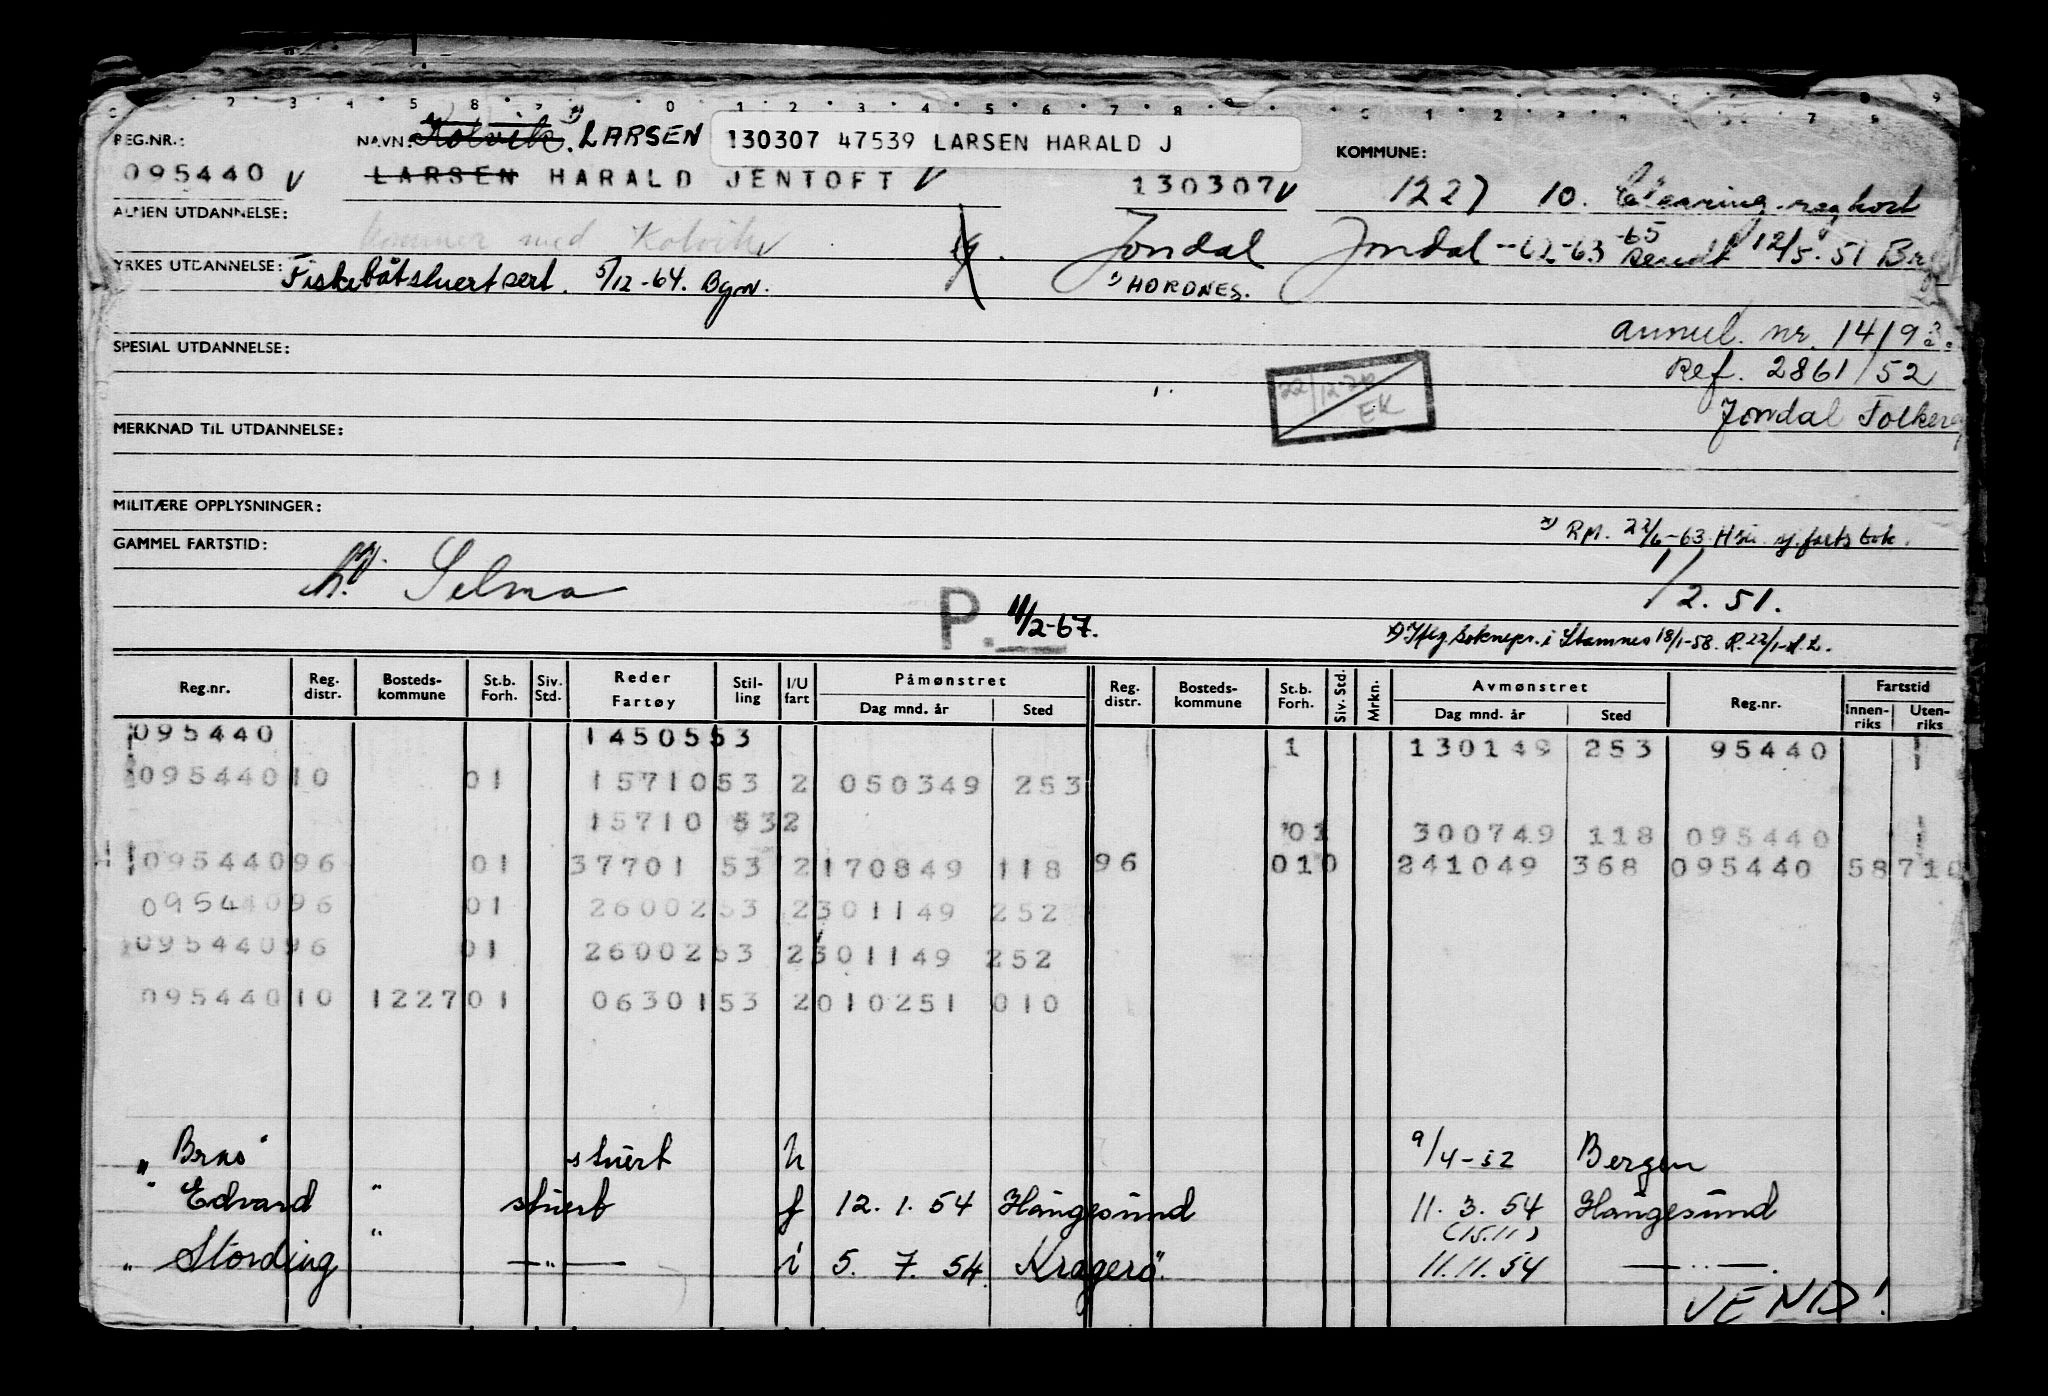 REG.NR.: NAVN: Kolvik. LARSEN 130307 47539 LARSEN HARALD J KOMMUNE:
095440 V LARSEN HARALD JENTOFT V 130307 V 1227 10. Clearing. regkort
ALMEN UTDANNELSE: kommer med Kolvik Jondal Jondal -62-63 -65 sendt 12/5. 51
YRKES UTDANNELSE: Fiskebåtstuertsert. 5/12-64. Bgn. 1) HORDNES.
annul. nr. 14193.
SPESIAL UTDANNELSE:
Ref. 2861/52
22/12-70 EK
Jondal Folkereg
MERKNAD TIL UTDANNELSE:
MILITÆRE OPPLYSNINGER:
Rp. 22/6-63. Hsu. sj.farts bok.
GAMMEL FARTSTID:
Selma 1/2. 51.
P. 11/2-67.
i Stamnes 18/1-58. R. 22/1-
Reg.nr. Reg. distr. Bosteds-kommune St.b. Forh. Siv. Std. Reder Fartøy Stil-ling I/U fart Påmønstret Dag mnd. år Sted Reg. distr. Bosteds-kommune St.b. Forh. Siv. Std. Mrkn. Avmønstret Dag mnd. år Sted Reg.nr. Fartstid Innen-riks Uten-riks
095440 1450553 1 130149 253 95440
095440 10 01 15710 53 2 050349 253
15710 53 2 01 300749 118 095440
095440 96 01 37701 53 2 170849 118 96 010 241049 368 095440 58 710
095440 96 01 26002 53 2 301149 252
095440 96 01 26002 53 2 301149 252
095440 10 1227 01 06301 53 2 010251 010
" stuert 9/4-52 Bergen
" Edvard " stuert f 12. 1. 54 Haugesund 11. 3. 54 Haugesund
(15.11)
" Stording " —"— i 5. 7. 54 Kragerö 11.11.54 —"—.
VEND!